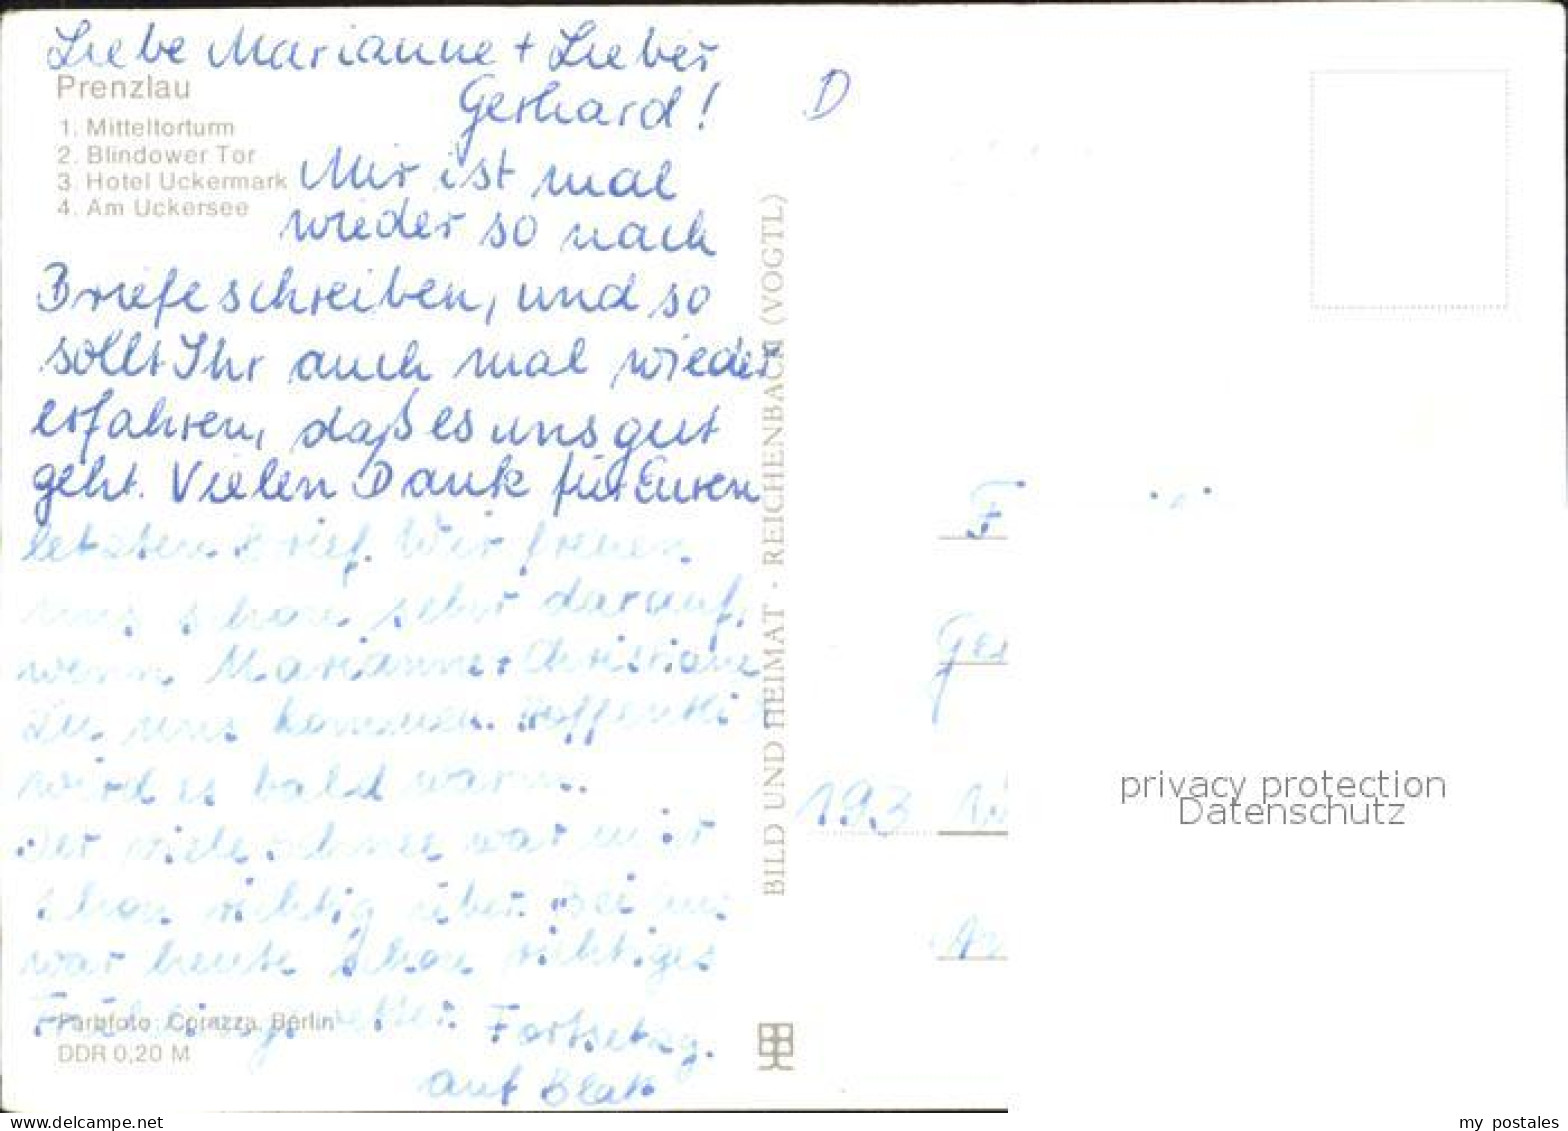 Liebe Marianne + Lieber
Gerhard!
Prenzlau
1. Mitteltorturm
2. Blindower Tor
3. Hotel Uckermark
4. Am Uckersee
Mir ist mal
wieder so nach
Briefeschreiben, und so
sollt Ihr auch mal wieder
erfahren, daß es uns gut
geht. Vielen Dank für Euren
letzten Brief. Wir freuen
uns schon sehr darauf,
wenn Marianne + Christiane
zu uns kommen. Hoffentli
wird es bald warm.
Der viele Schnee war mir
schon richtig über. Bei uns
war heute schon richtiges
Frühlingswetter. Fortsetzg.
auf Blatt
Farbfoto: Corazza, Berlin
DDR 0,20 M
BILD UND HEIMAT · REICHENBACH (VOGTL)
D
F
Ger
193
privacy protection
Datenschutz
www.delcampe.net
my_postales